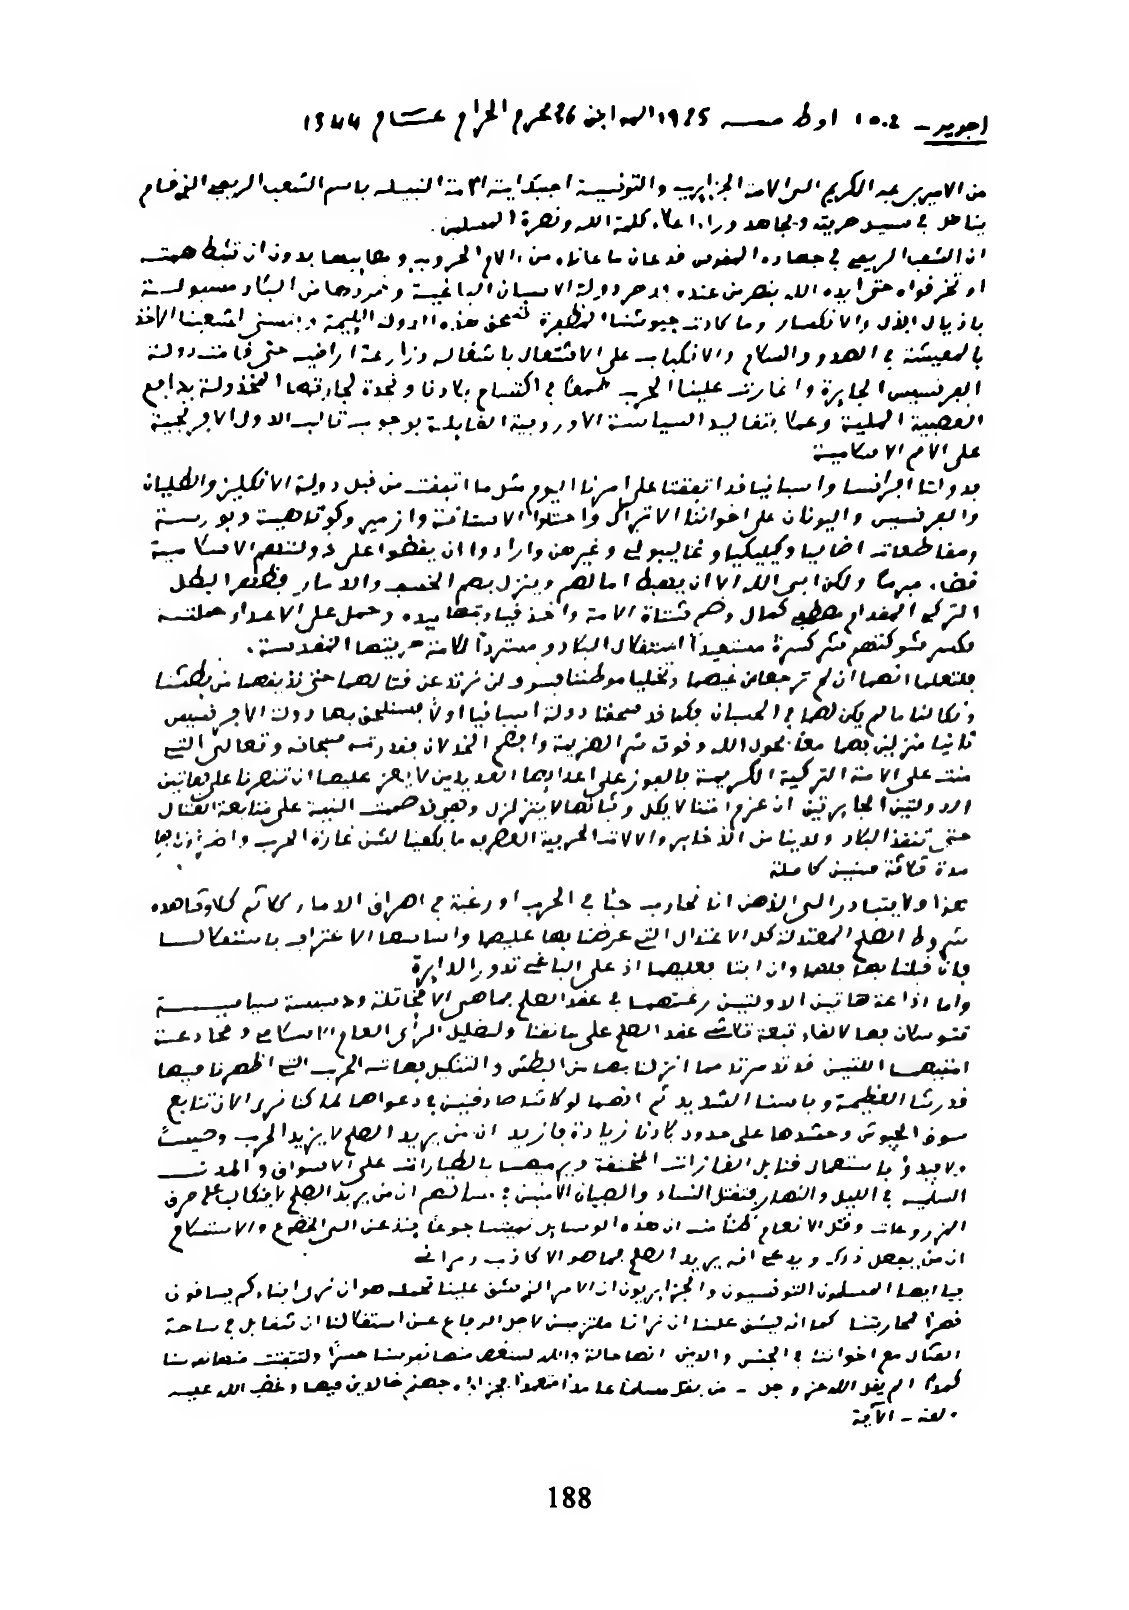 اجدير ـ في 15 اوط سنة 1925 الموافق 26 محرم الحرام عام 1344
من الامير بن عبد الكريم الى الامة الجزايرية والتونسية احييك ايتها الامة النبيلة باسم الشعب الريفي الذي قام
يناضل في سبيل حريته ويجاهد وراء اعلاء كلمة الله ونصرة المسلمين.
ان الشعب الريفي في جهاده المقدس قد عانى ما عاناه من آلام الحروب ومصايبها بدون ان تثبط همته
او تخر قواه حتى ايده الله بنصر من عنده ودحر دولة الاسبان الباغية وتمردها من البلاد مسبولة
باذيال الذل والانكسار وما كادت جيوشنا المظفرة تسحق هذه الدولة اللئيمة ويتسنى لشعبنا الاخذ
بالمعيشة في الهدوء والسلام والانكباب على الاشتغال باشغاله وزارعة اراضيه حتى قامت دولة
الفرنسيس الجايرة واغارت علينا الحرب طمعا في اقتسام بلادنا ونجدة لجارتها المخذولة بدافع
العصبية الملية وعملا بتقاليد السياسة الاوروبية القايلة بوجوب تالب الدول الافرنجية
على الامم الاسلامية
فدولتا افرانسا واسبانيا قد اتفقتا على امرنا اليوم مثل ما اتفقت من قبل دولة الانكليز والطليان
والفرنسيس واليونان على اخواننا الاتراك واحتلوا الاستانة وازمير وكوتاهية وبورسة
ومقاطعات اضاليا وكيليكيا وغاليبولي وغيرهن وارادوا ان يقضوا على دولتهم الاسلامية
قضاء مبرما ولكن ابى الله الا ان يحبط امالهم وينزل بهم الخسف والدمار فظهر البطل
التركي المقدام مصطفى كمال وضم شتات الامة واخذ قيادتها بيده وحمل على الاعداء حملته
فكسر شوكتهم شر كسرة مستعيدا استقلال البلاد ومستردا للامة حريتها المقدسة.
فلتعلما انهما ان لم ترجعا عن غيهما وتخليا موطننا فسوف لن نرتد عن قتالهما حتى نذيقهما من بطشنا
ونكالنا ما لم يكن لهما في الحسبان فكما قد سحقنا دولة اسبانيا اولا فسنلحق بها دولة الافرنسيس
ثانيا منزلين بهما معا بحول الله وقوته شر الهزيمة واقبح الخذلان بقدرته سبحانه وتعالى التي
منت على الامة التركية الكريمة بالفوز على اعدايها العديدين لا يعز عليها ان تنصرنا على هاتين
الدولتين الجايرتين ان عزمنا لا يكل وثباتنا لا يتزلزل وقد صممت النية على متابعة القتال
حتى تنقذ البلاد ولدينا من الذخاير والالات الحربية العصرية ما يكفينا لشن غارة الحرب واضرام نارها
مدة ثلاثة سنين كاملة
هذا ولا يتبادر الى الذهن انا نحارب حبا في الحرب او رغبة في اهراق الدماء كلا ثم كلا وشاهده
شروط الصلح المعتدلة كل الاعتدال التي عرضنا بها عليهما واساسها الاعتراف باستقلالنا
فان قبلتا بها فلهما وان ابتا فعليهما اذ على الباغي تدور الدايرة
واما اذاعة هاتين الدولتين رغبتهما في عقد الصلح فما هي الا مخاتلة ودسيسة سياسية
تتوسلان بها لالقاء تبعة تلاشي عقد الصلح على عاتقنا ولتضليل الراي العام الاسلامي ومخادعة
امتيهما اللتين قد تذمرتا مما انزلنا بهما من البطش والتنكيل بهاته الحرب التي اظهرنا فيها
قدرتنا العظيمة وباسنا الشديد ثم انهما لو كانتا صادقتين في دعواهما لما كنا نرى الان تتابع
سوق الجيوش وحشدها على حدود بلادنا زيادة فازيد ان من يريد الصلح لا يزيد الحرب
باستعمال قنابل الغازات المخنقة ويرميها بالطيارات على الاسواق والمدن
في الليل والنهار فتقتل النساء والصبيان الامنين؛ نسالهم ان من يريد الصلح لا ينكاب على حرق
المزروعات وقتل الانعام ظنا منه ان هذه الوسايل تميتنا جوعا ينذعن الى الخضوع والاستسلام
ان من يفعل ذلك ويدعي انه يريد الصلح فما هو الا كاذب ومراء
فيا ايها المسلمون التونسيون والجزايريون ان الامر الذي يشق علينا تحمله هو ان نرى ابناءكم يساقون
قهرا لمحاربتنا كما انه ليشق علينا ان نرانا ملتزمين لاجل الدفاع عن استقلالنا ان نتقابل في ساحة
القتال مع اخواننا في الجنس والدين انها حالة والله لتنغص منها نفوسنا حسرة ولتتفتت منها قلوبنا
كمدا الم يقل الله عز وجل ـ من يقتل مسلما عامدا متعمدا فجزاؤه جهنم خالدين فيها وغضب الله عليه
ولعنه ـ الآية
188